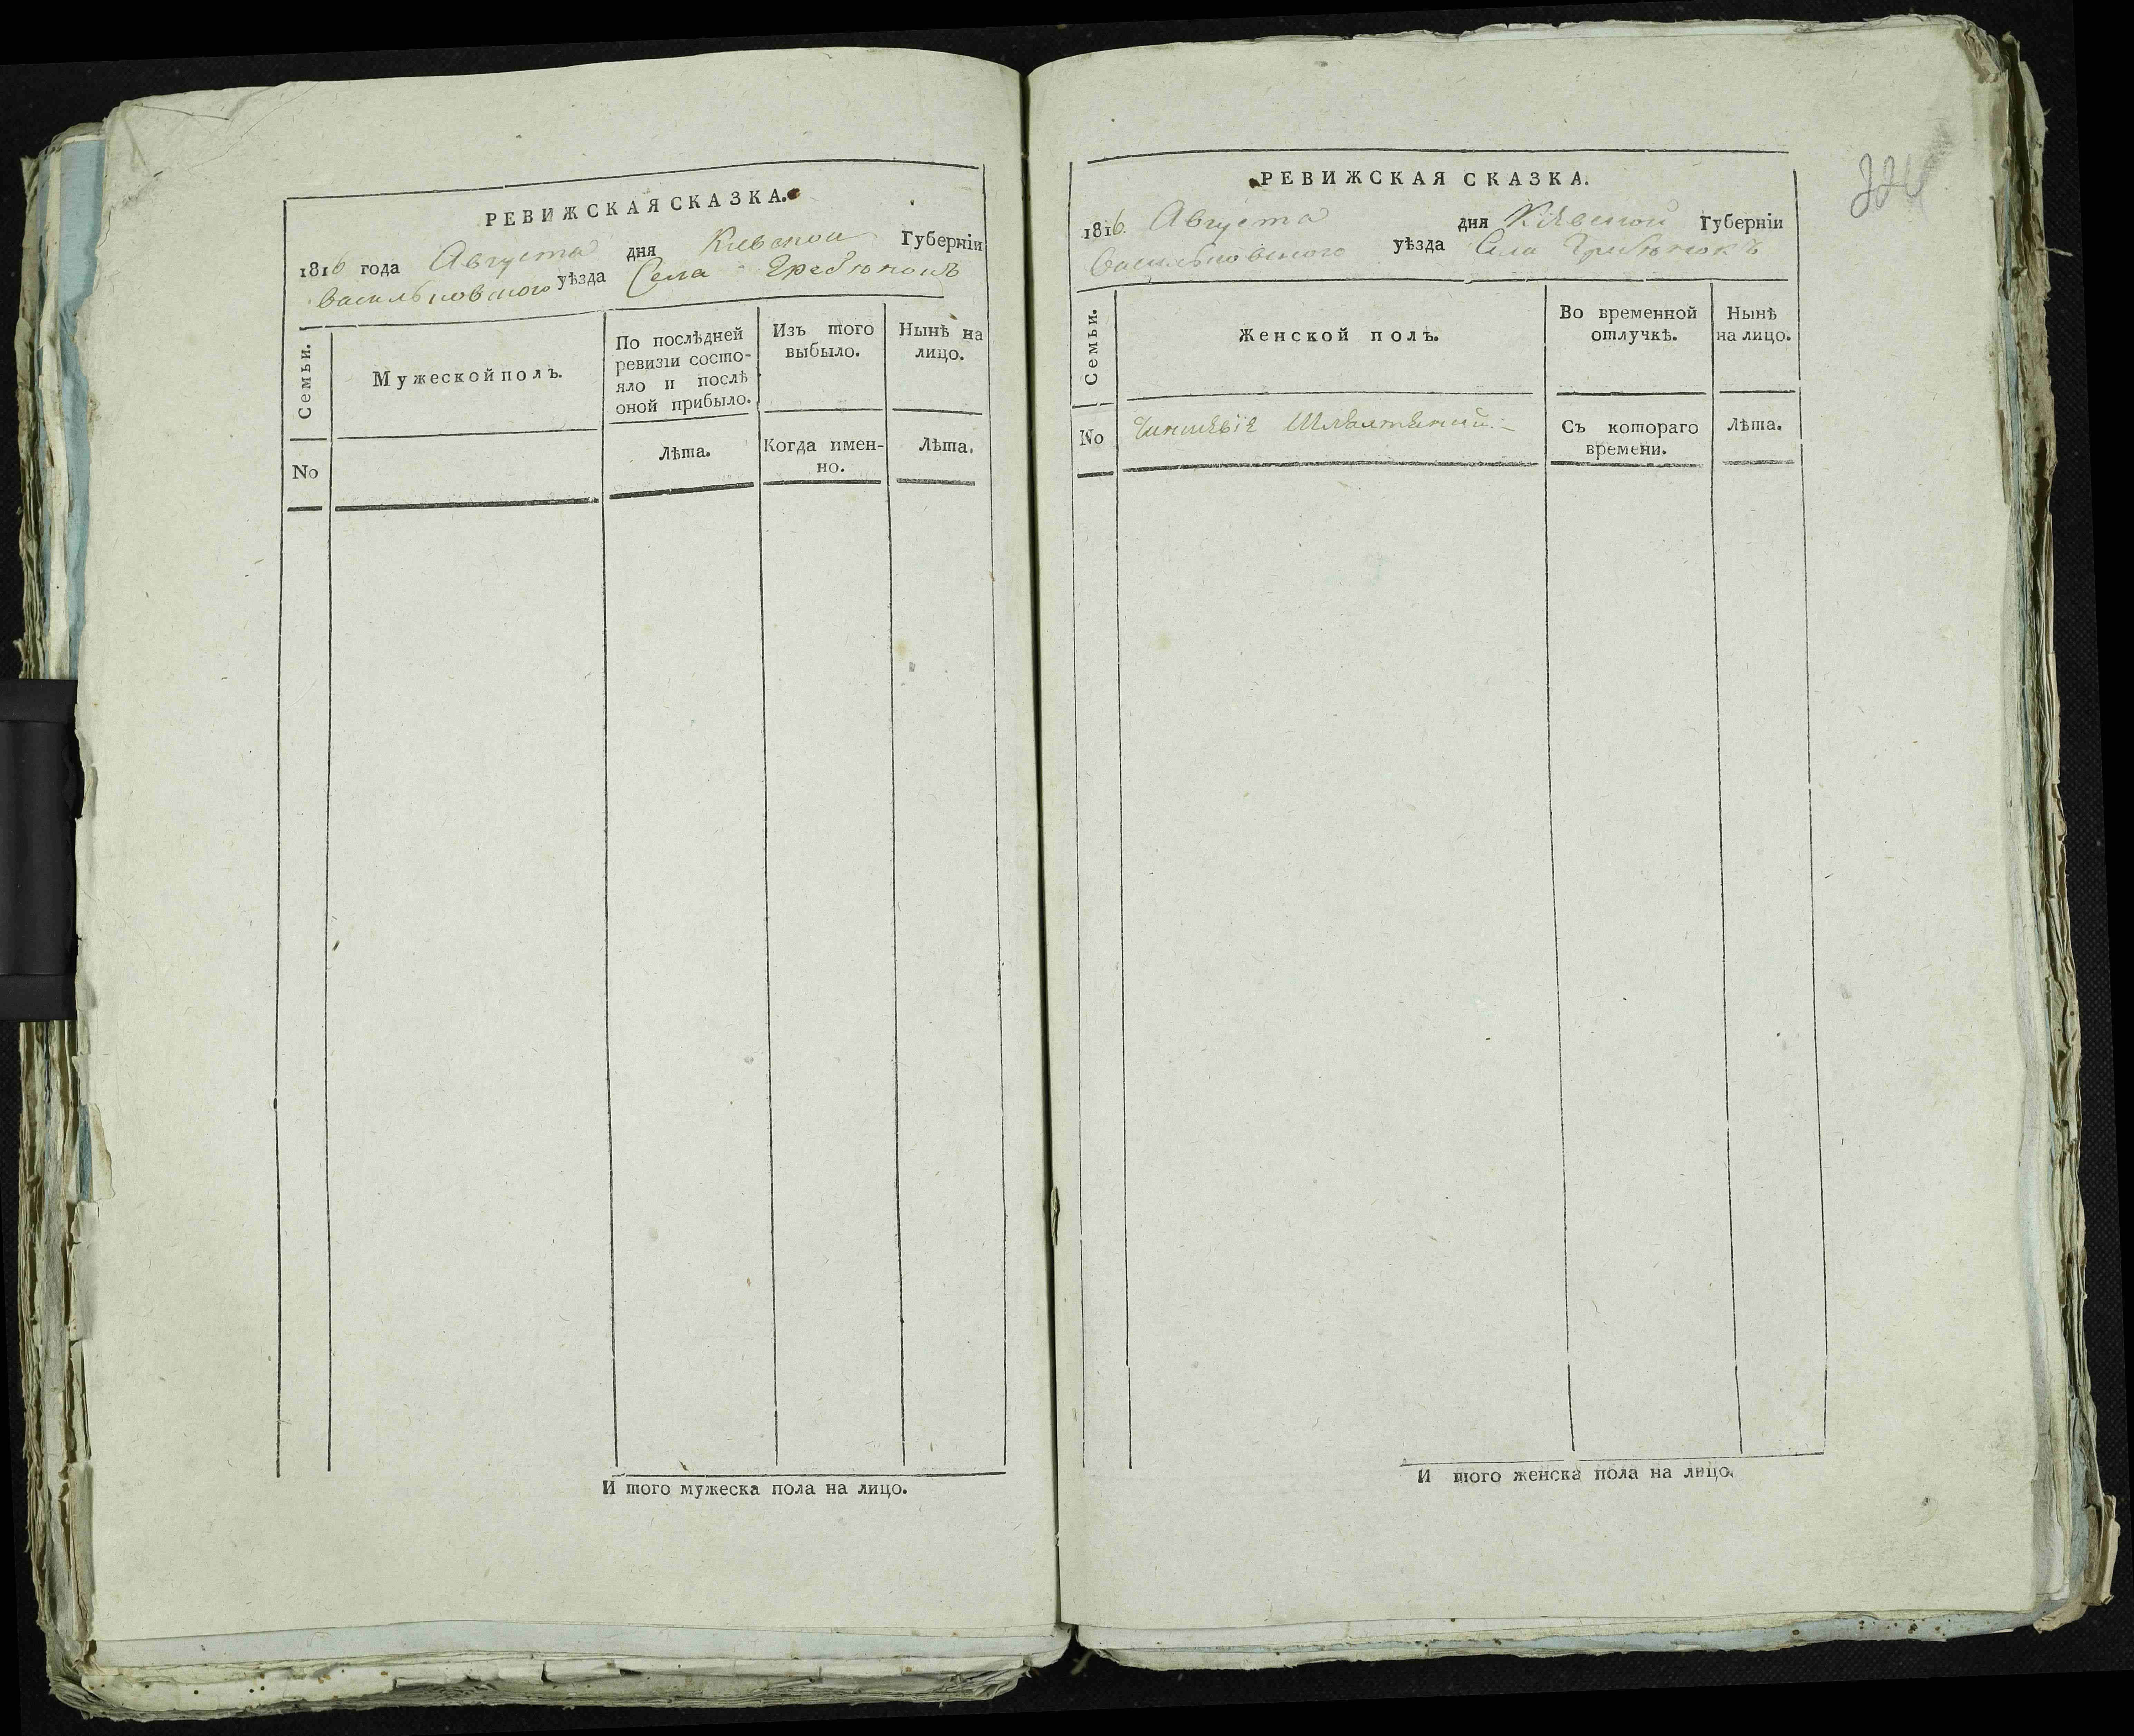 РЕВИЖСКАЯ СКАЗКА.
1816 года Августа дня Киевской Губерніи
Васильковского уѣзда Села Гребюнокъ
Семьи.
Мужеской полъ.
По послѣдней
ревизіи состо-
яло и послѣ
оной прибыло.
Изъ того
выбыло.
Нынѣ на
лицо.
No
Лѣта.
Когда имен-
но.
Лѣта.
И того мужеска пола на лицо.
РЕВИЖСКАЯ СКАЗКА.
1816. Августа дня Кіевской Губерніи
Васильковского уѣзда Села Гребюнокъ
Семьи.
Женской полъ.
Во временной
отлучкѣ.
Нынѣ
на лицо.
No
Чиншевіе
Съ котораго
времени.
Лѣта.
И того женска пола на лицо.